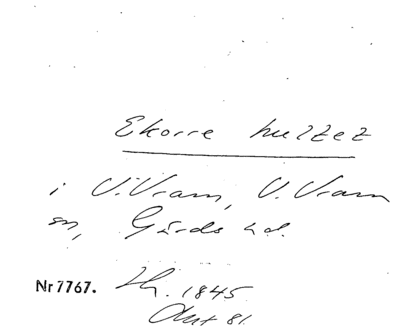 Ekorrehultet
i V. Vram, V. Vram
sn, Gärds hd.
Nr 7767. 1845
81.